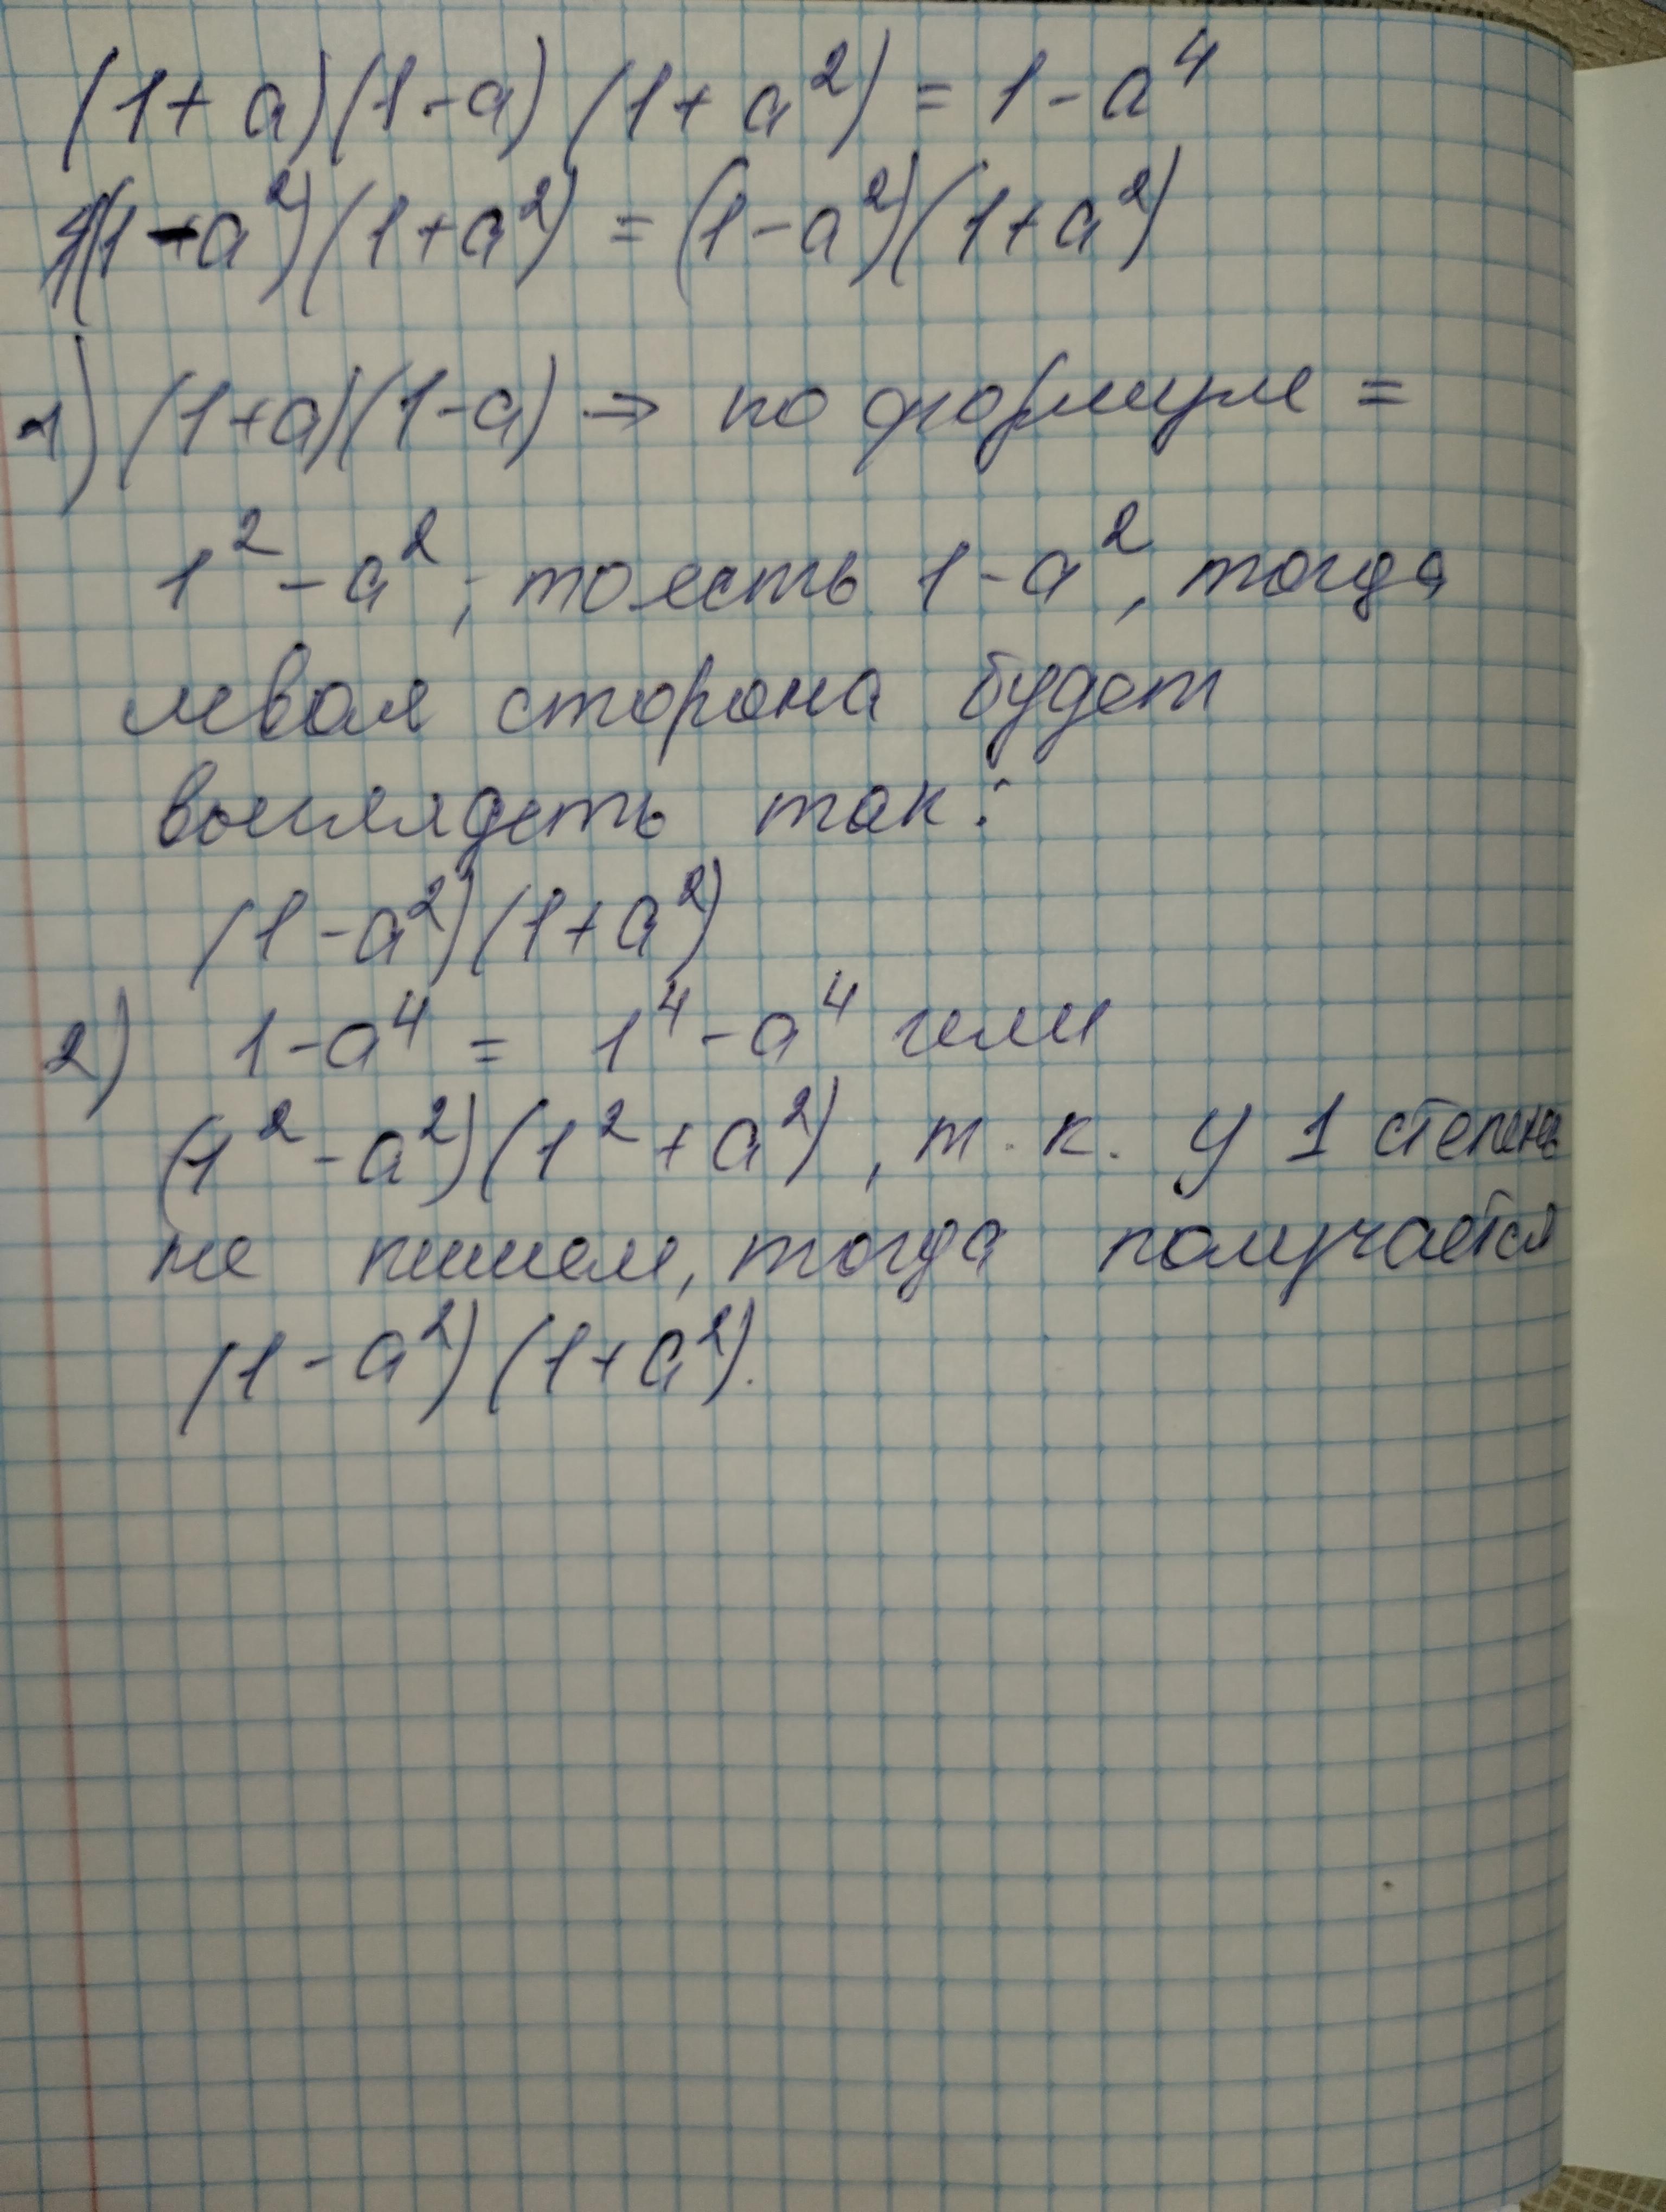 (1 + a)(1 - a)(1 + a²) = 1 - a⁴
(1 - a²)(1 + a²) = (1 - a²)(1 + a²)
1) (1+a)(1-a) → по формуле =
1² - a², то есть 1 - a², тогда
левая сторона будет
выглядеть так:
(1 - a²)(1 + a²)
2) 1 - a⁴ = 1⁴ - a⁴ или
(1² - a²)(1² + a²), т.к. у 1 степень
не пишем, тогда получается
(1 - a²)(1 + a²).